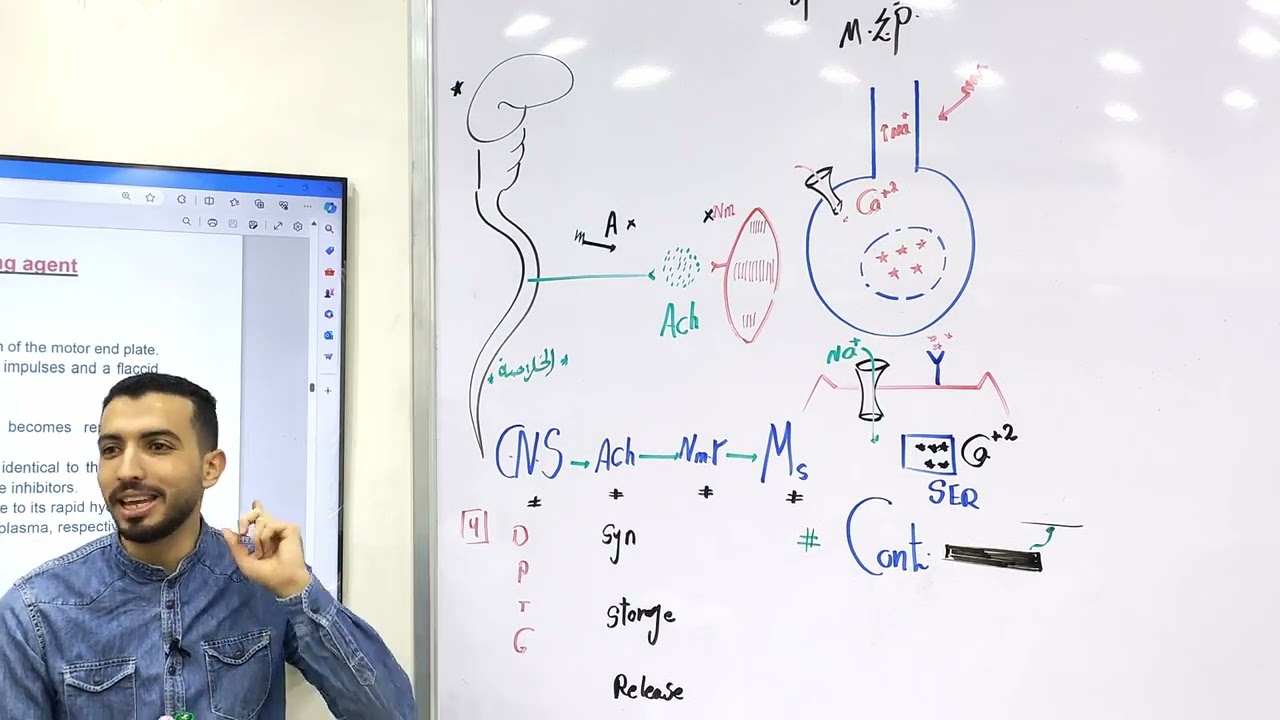 ng agent
n of the motor end plate.
impulses and a flaccid
becomes re
identical to th
e inhibitors.
e to its rapid hy
plasma, respecti
M.E.P.
↑Na+
Ca+2
A
m
Nm
Ach
Na+
* الخلاصة *
CNS → Ach → Nmr → Ms
Ca+2
SER
4
D
P
T
G
Syn
Storage
Release
# Cont.